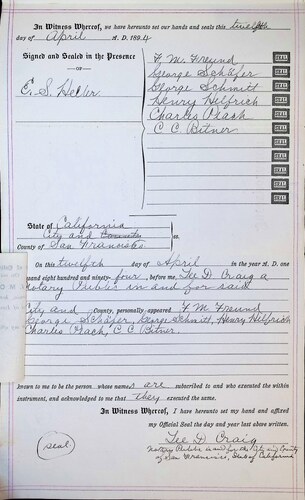 In Witness Whereof, we have hereunto set our hands and seals this twelfth
day of April A. D. 1894
Signed and Sealed in the Presence
OF
E. S. Heller
F M Freund
George Schäfer
George Schmitt
Henry Helfrich
Charles Flach
C C Bitner
SEAL
SEAL
SEAL
SEAL
SEAL
SEAL
SEAL
SEAL
SEAL
SEAL
SEAL
State of California
City and
County of San Francisco
ss
On this twelfth day of April in the year A. D. one
thousand eight hundred and ninety-four, before me Lee D. Craig a
Notary Public in and for said
City and County, personally appeared F M Freund
George Schäfer George Schmitt, Henry Helfrich
Charles Flach, C C Bitner.
known to me to be the person whose names are subscribed to and who executed the within
instrument, and acknowledged to me that they executed the same.
In Witness Whereof, I have hereunto set my hand and affixed
my Official Seal the day and year last above written.
Lee D Craig
Notary Public in and for the City and County
of San Francisco, State of California
seal